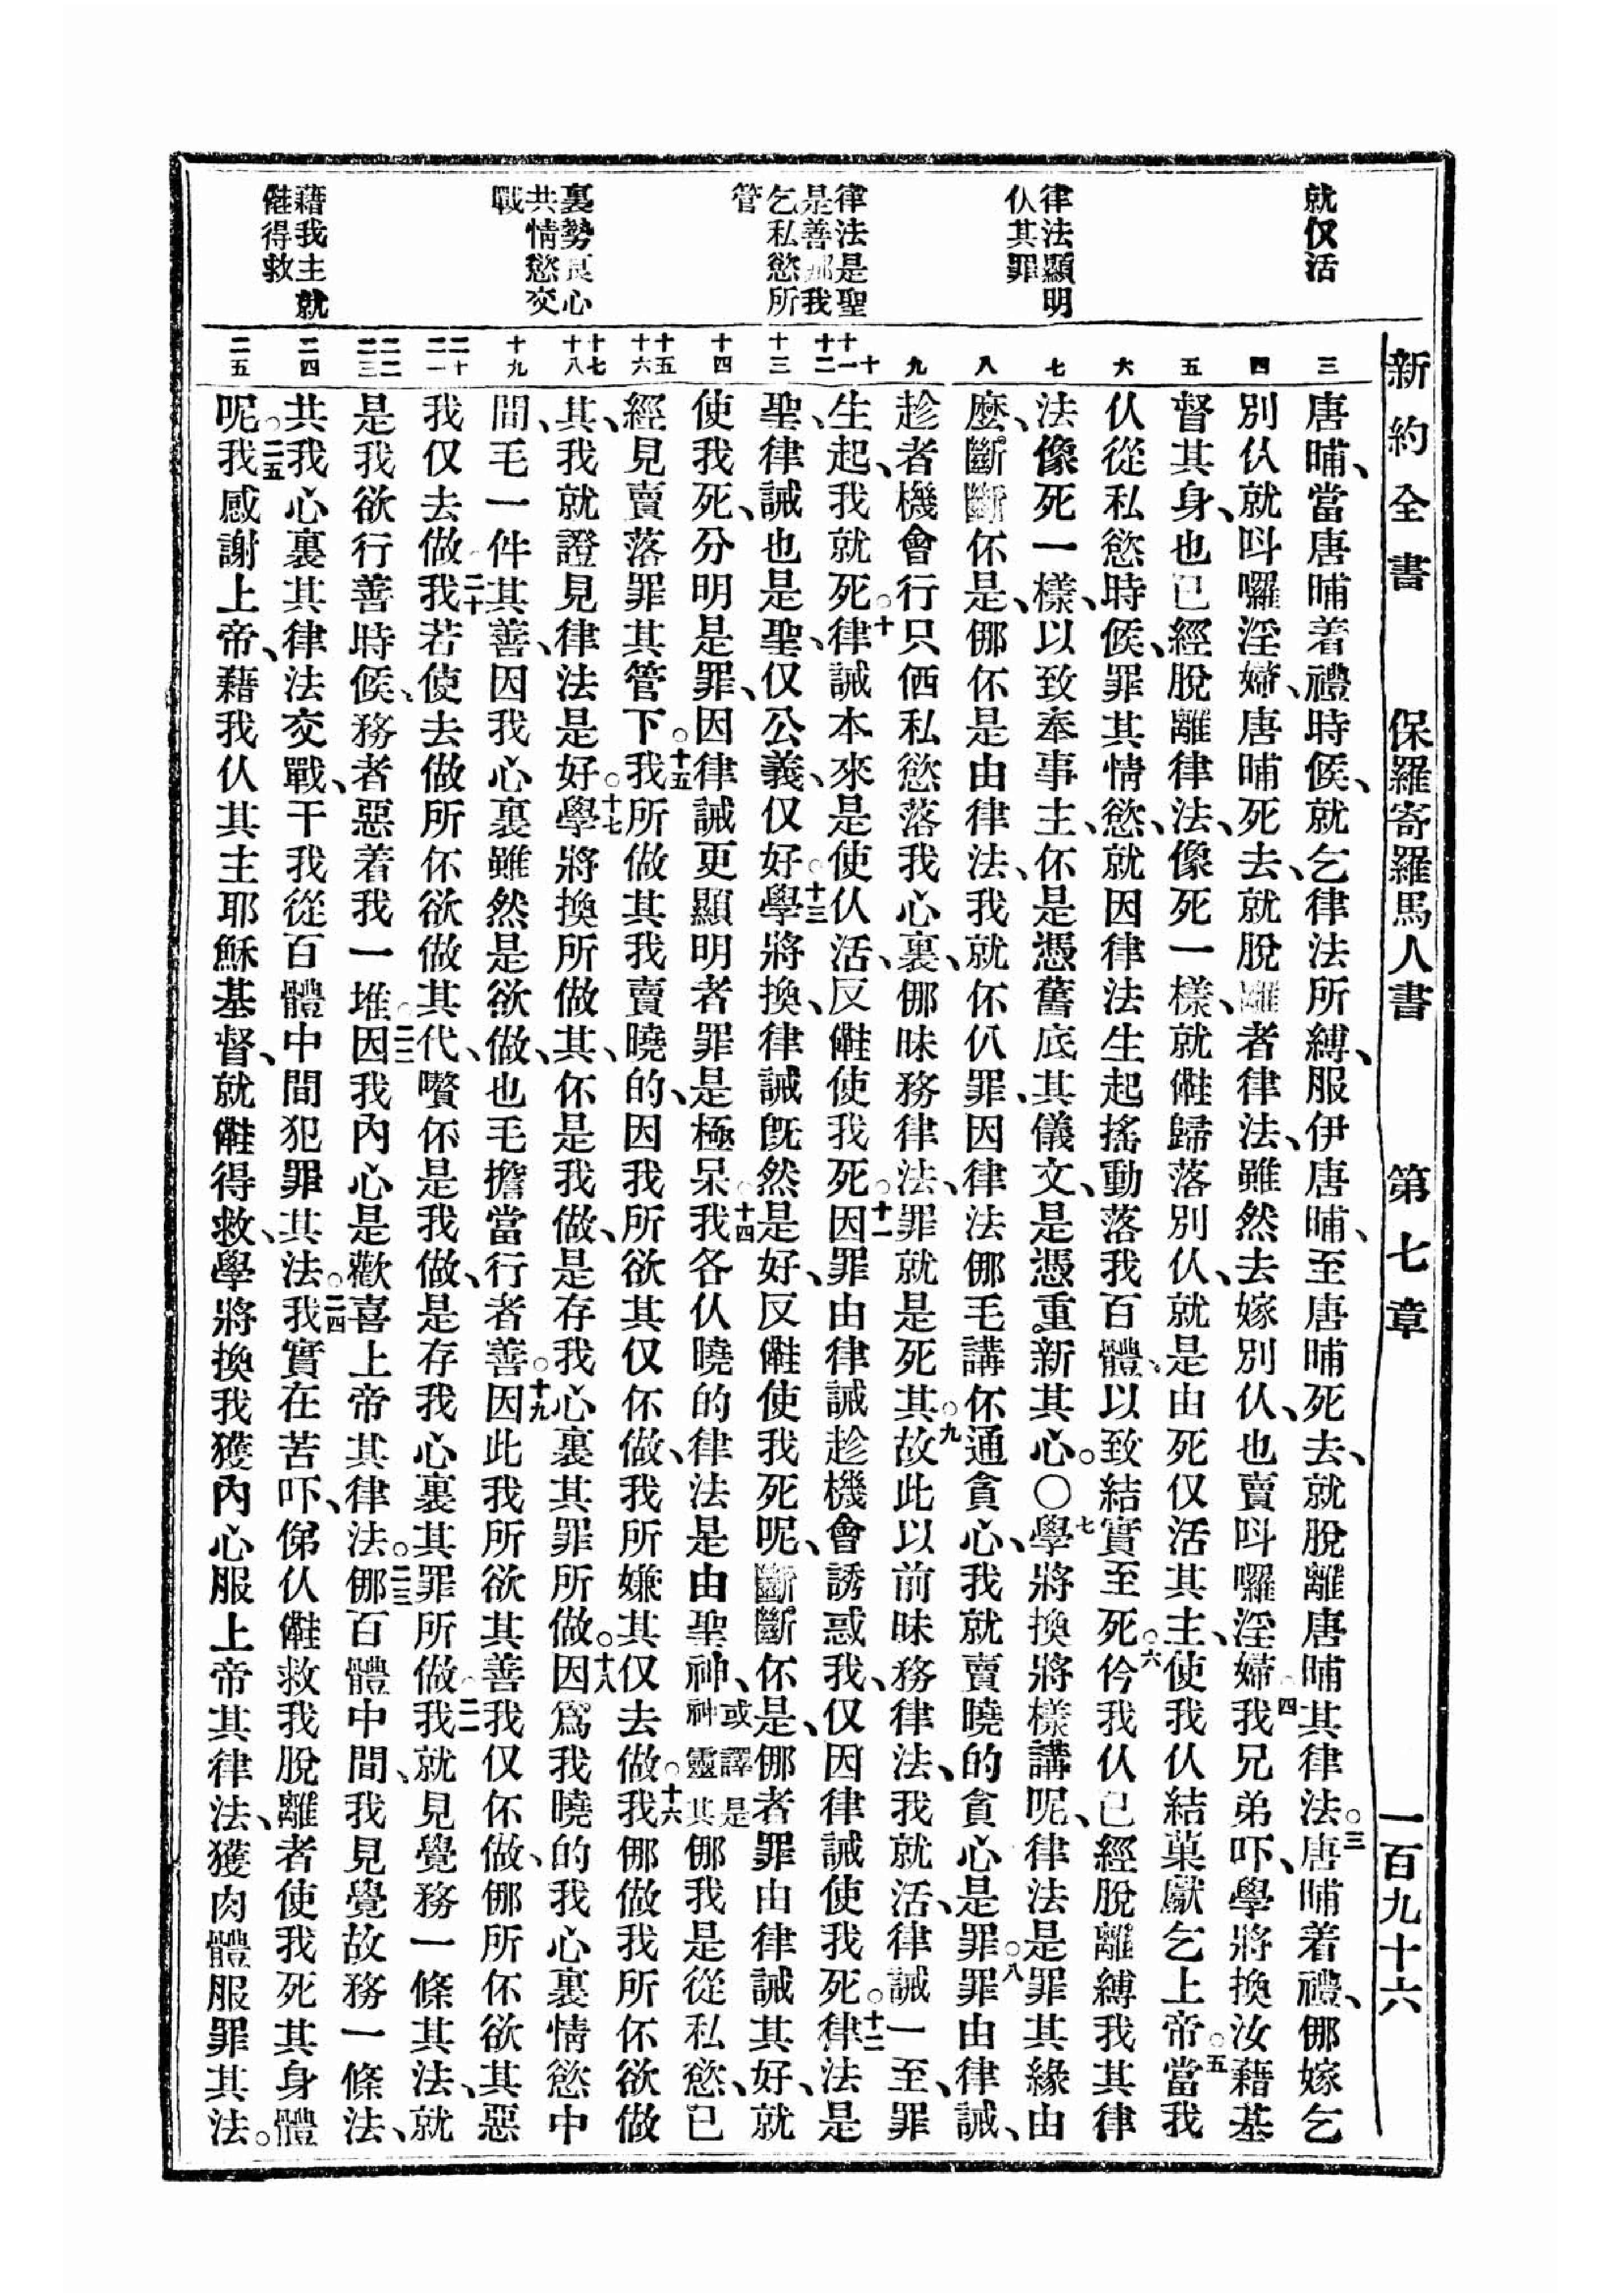 新約全書 保羅寄羅馬人書 第七章 一百九十六
就仅活
律法顯明
仈其罪
律法是聖
是善那我
乞私慾所
管
裏勢良心
共情慾交
戰
藉我主就
𠆧得救
三
四
五
六
七
八
九
十
十一
十二
十三
十四
十五
十六
十七
十八
十九
二十
二一
二二
二三
二四
二五
唐晡、當唐晡着禮時候、就乞律法所縛、服伊唐晡、至唐晡死去、就脫離唐晡其律法。三唐晡着禮、倻嫁乞
別仈、就呌囉淫婦、唐晡死去、就脫離者律法、雖然去嫁別仈、也賣呌囉淫婦。四我兄弟吓、學將換汝藉基
督其身、也已經脫離律法、像死一樣、就𠆧歸落別仈、就是由死仅活其主、使我仈結菓獻乞上帝。五當我
仈從私慾時候、罪其情慾、就因律法生起搖動落我百體、以致結實至死。六仱我仈已經脫離縛我其律
法、像死一樣、以致奉事主、伓是憑舊底其儀文、是憑重新其心。〇七學將換將樣講呢、律法是罪其緣由
麼、斷斷伓是、倻伓是由律法、我就伓仈罪、因律法倻毛講伓通貪心、我就賣曉的貪心是罪。八罪由律誡、
趁者機會行只仾私慾落我心裏、倻昧務律法、罪就是死其。九故此以前昧務律法、我就活、律誡一至、罪
生起、我就死。十律誡本來是使仈活、反𠆧使我死。十一因罪由律誡趁機會誘惑我、仅因律誡使我死。十二律法是
聖、律誡也是聖、仅公義、仅好。十三學將換、律誡旣然是好、反𠆧使我死呢、斷斷伓是、倻者罪由律誡其好、就
使我死、分明是罪、因律誡更顯明者罪是極呆。十四我各仈曉的律法是由聖神、或譯是神靈其倻我是從私慾、已
經見賣落罪其管下。十五我所做其我賣曉的、因我所欲其仅伓做、我所嫌其仅去做。十六我倻做我所伓欲做
其、我就證見律法是好。十七學將換所做其、伓是我做、是存我心裏其罪所做。十八因爲我曉的我心裏情慾中
間、毛一件其善、因我心裏雖然是欲做、也毛擔當行者善。十九因此我所欲其善我仅伓做、倻所伓欲其惡
我仅去做。二十我若使去做所伓欲做其代、嚽伓是我做、是存我心裏其罪所做。二一我就見覺務一條其法、就
是我欲行善時候、務者惡着我一堆。二二因我內心是歡喜上帝其律法。二三倻百體中間、我見覺故務一條法、
共我心裏其律法交戰、干我從百體中間犯罪其法。二四我實在苦吓、俤仈𠆧救我脫離者使我死其身體
呢。二五我感謝上帝、藉我仈其主耶穌基督、就𠆧得救、學將換我獲內心服上帝其律法、獲肉體服罪其法。